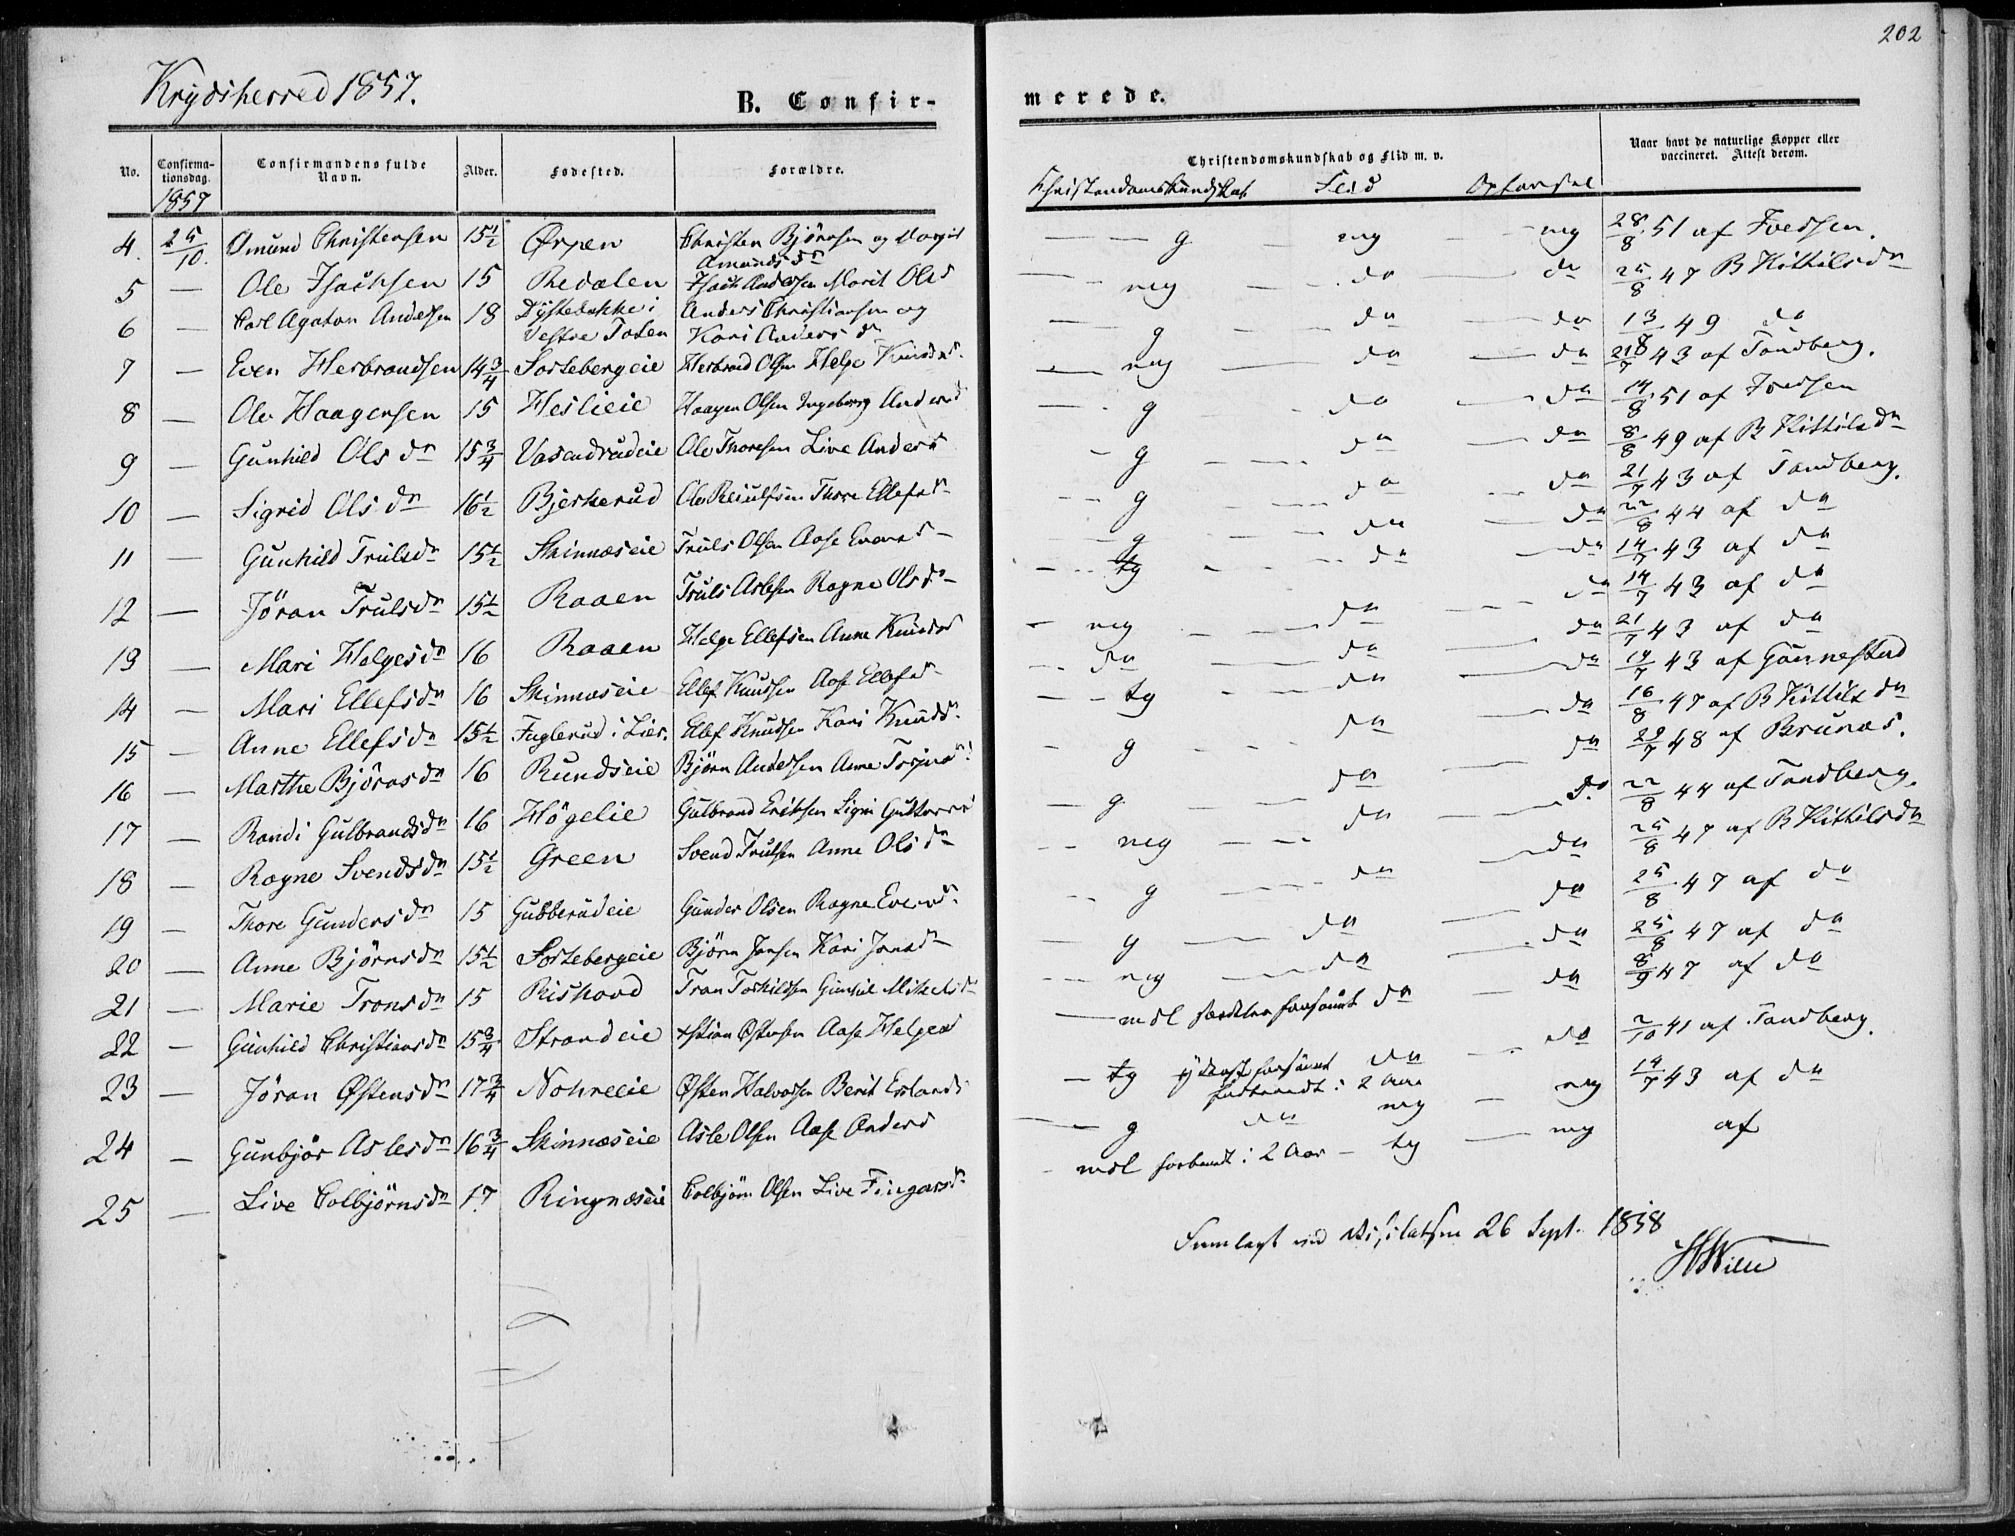 202
Krydsherred 1857.
B. Confir-
merede.
No.
Confirma-
tionsdag.
Confirmandens fulde
Navn.
Alder.
Fødested.
Forældre.
Christendomskundskab og Flid m. v.
Naar havt de naturlige Kopper eller
vaccineret. Attest derom.
1857
Christendomskundskab Flid Opførsel
4. 25/10. Omund Christensen 15 1/2 Ørpen Christen Bjørnsen og Margit Amunds dr g mg mg 28/8 51 af Iversen.
5 — Ole Isachsen 15 Redalen Isach Andersen Marit Ols d mg do do 25/8 47 B Kittilsdr
6 — Carl Agaton Andersen 18 Dystebakke i Vestre Toten Anders Christiansen og Kari Anders dr g do do 13/8 49 do
7 — Even Herbrandsen 14 3/4 Sortebergeie Herbrand Olsen Helge Knudsd. mg do do 21/7 43 af Tandberg.
8 — Ole Haagensen 15 Heslieie Haagen Olsen Ingeborg Andersd g do do 14/8 51 af Iversen
9 — Gunhild Ols dr 15 3/4 Vasendrudeie Ole Thoresen Live Anders g do do 8/8 49 af B Kittilsdr
10 — Sigrid Ols dr 16 1/2 Bjerkerud Ole Reiulfsen Thore Ellefsdr g do do 21/7 43 af Tandberg.
11 — Gunhild Trulsdr 15 1/2 Skinnæseie Truls Olsen Aase Evensd g do do 22/8 44 af do
12 — Jöran Trulsdr 15 1/2 Raaen Truls Aslesen Ragne Olsdr tg do do 14/7 43 af do
13 — Mari Helgesdr 16 Raaen Helge Ellefsen Anne Knudsd mg do do 14/7 43 af do
14 — Mari Ellefsdr 16 Skinnæseie Ellef Knudsen Aase Ellefsd do do do 21/7 43 af do
15 — Anne Ellefsdr 15 1/2 Fuglerud i Lier. Ellef Knudsen Kari Knudsd. tg do do 14/7 43 af Gönnestad
16 — Marthe Björnsdr 16 Rundseie Björn Andersen Anne g do do 16/8 47 af B Kittilsdr
17 — Randi Gulbrandsdr 16 Högelie Gulbrand Eriksen Sigri g do do 29/7 48 af Brunæs.
18 — Ragne Svendsdr 15 1/2 Green Svend Trulsen Anne Olsdr mg do do 22/8 44 af Tandberg.
19 — Thore Gundersdr 15 Gubberudeie Gunder Olsen Ragne Evensd. g do do 25/8 47 af B Kittilsdr
20 — Anne Björnsdr 15 1/2 Sortebergeie Björn Jensen Kari Jensdr g do do 25/8 47 af do
21 — Marie Tronsdr 15 Rishovd Tron Torkildsen Gunhil Mikelsdr mg do do 25/8 47 af do
22 — Gunhild Christiansdr 15 3/4 Strandeie Xstian Østensen Aase Helgesd mdl forsömt do do 8/9 47 af do
23 — Jöran Østensdr 17 3/4 Nohreeie Østen Halvorsen Berit Erlands tg yderst forsömt i 2 Aar do do 2/10 41 af Tandberg.
24 — Gunbjör Aslesdr 16 3/4 Skinnæseie Asle Olsen Aase Andersd g do mg mg 14/7 43 af do
25 — Live Colbjörnsdr 17 Ringnæseie Colbjörn Olsen Live Fingarsdr mdl i 2 Aar — tg mg af
Fremlagt ved Visitatsen 26 Sept. 1858